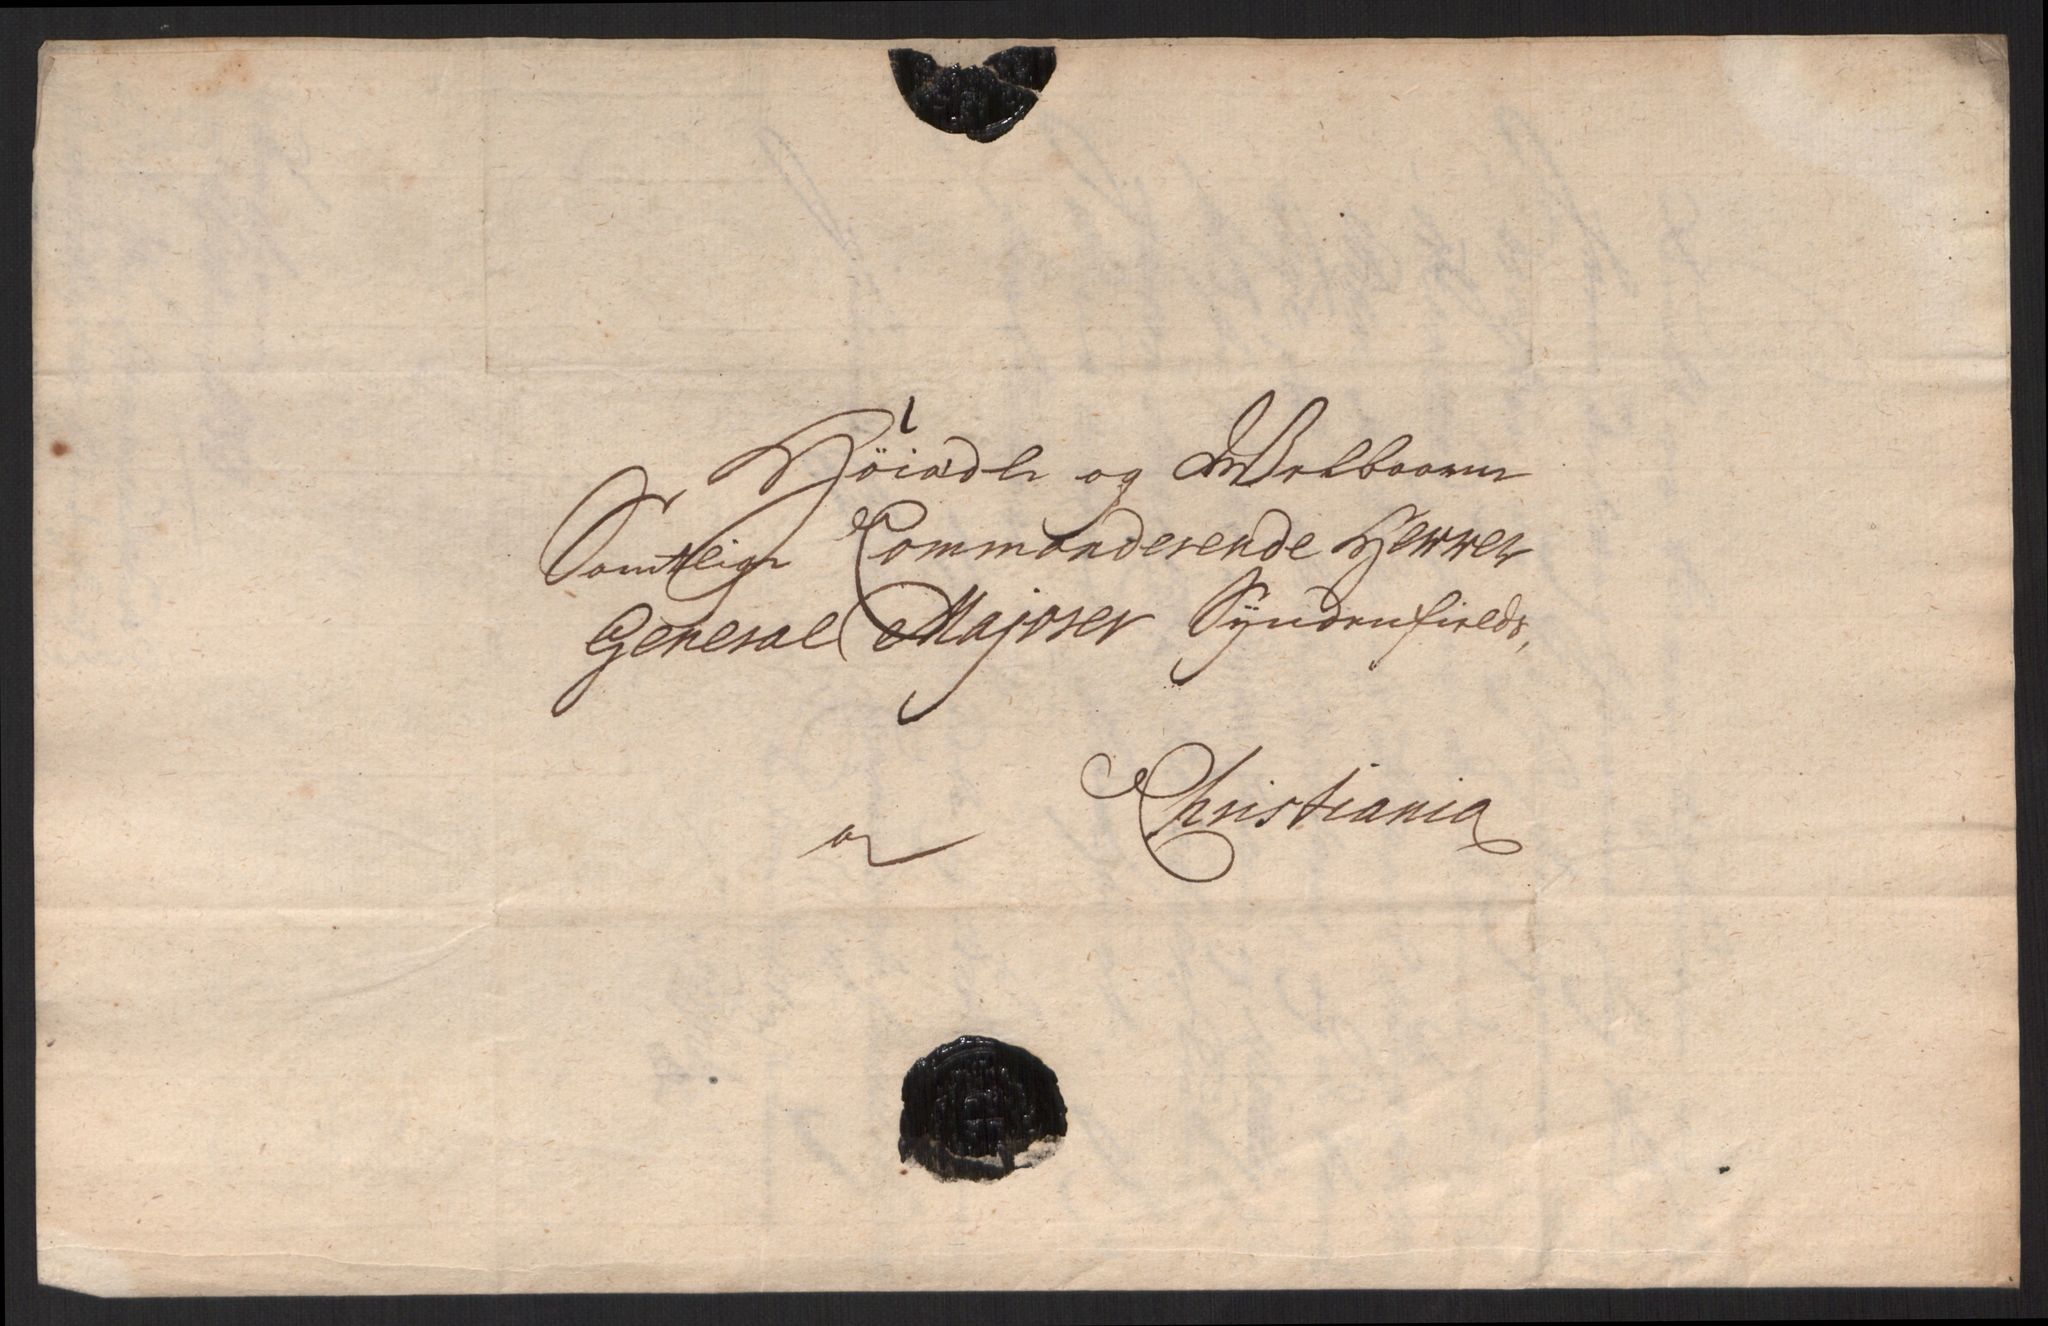 Höiædle og Welbaarne
Samtlige Commanderende Herrer
General Majorer Syndenfields,
a Christiania